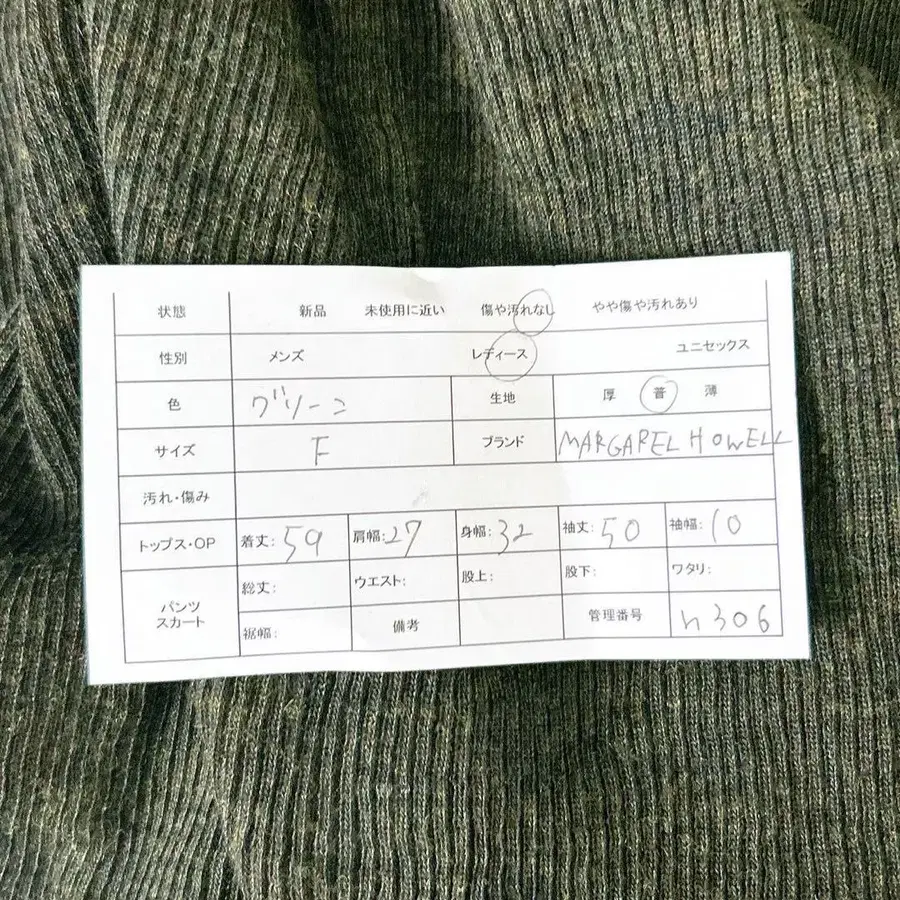 状態 新品 未使用に近い 傷や汚れなし やや傷や汚れあり
性別 メンズ レディース ユニセックス
色 グリーン 生地 厚 普 薄
サイズ F ブランド MARGAREL HOWELL
汚れ・傷み
トップス・OP 着丈: 59 肩幅: 27 身幅: 32 袖丈: 50 袖幅: 10
パンツ スカート 総丈: ウエスト: 股上: 股下: ワタリ:
裾幅: 備考 管理番号 h306